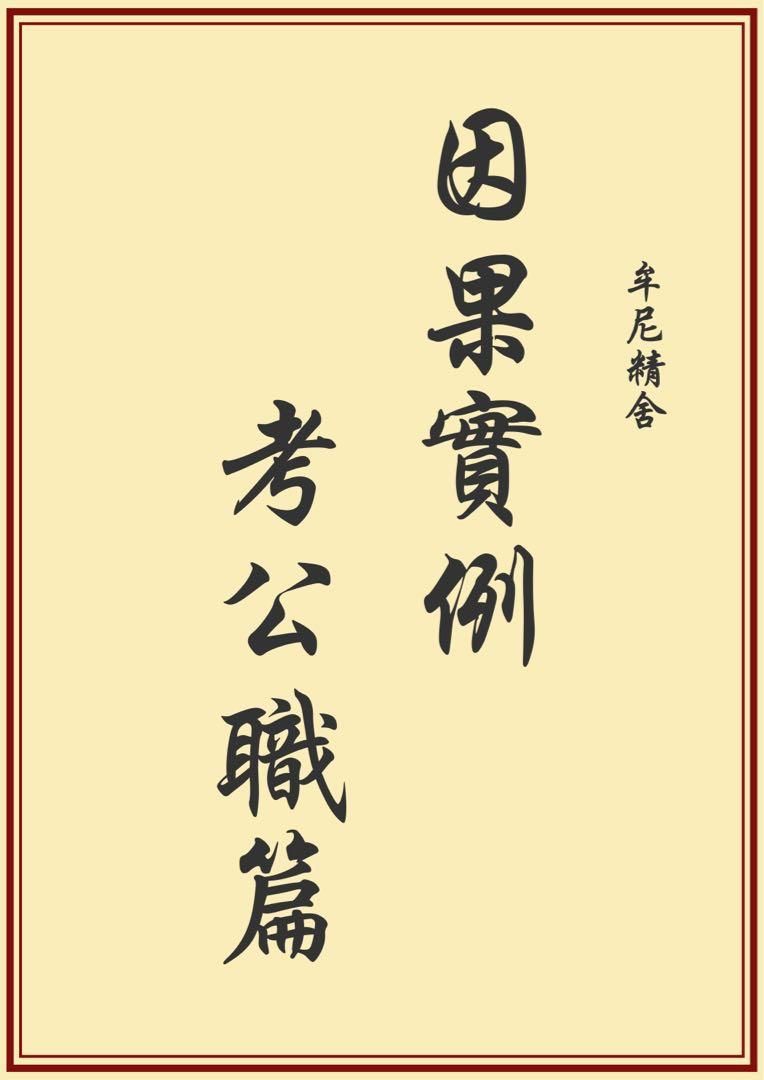 牟尼精舍
因果實例
考公職篇